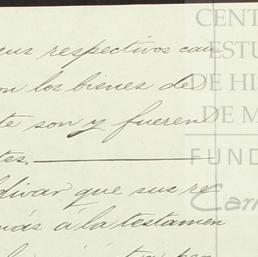 sus respectivos cau
on los bienes de
te son y fueren
tes.
ldivar que sus re
más á la testamen
CENT
ESTU
DE HI
DE M
FUND
Carr